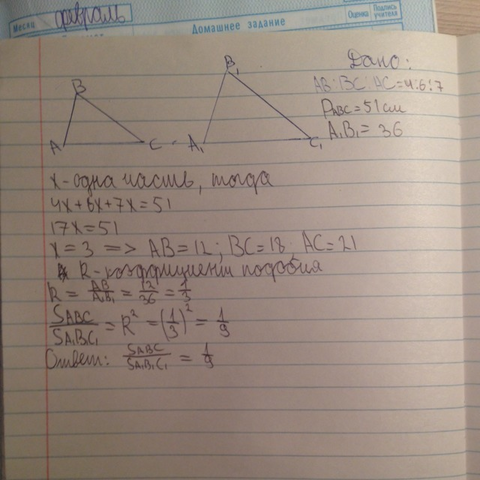 Месяц февраль
Домашнее задание
Оценка
Подпись учителя
Дано:
AB:BC:AC=4:6:7
PABC=51 см
A₁B₁=36
B
A
C
B₁
A₁
C₁
x-одна часть, тогда
4x+6x+7x=51
17x=51
x=3 => AB=12; BC=18, AC=21
R-коэффициент подобия
R = AB/A₁B₁ = 12/36 = 1/3
SABC/SA₁B₁C₁ = R² = (1/3)² = 1/9
Ответ: SABC/SA₁B₁C₁ = 1/9